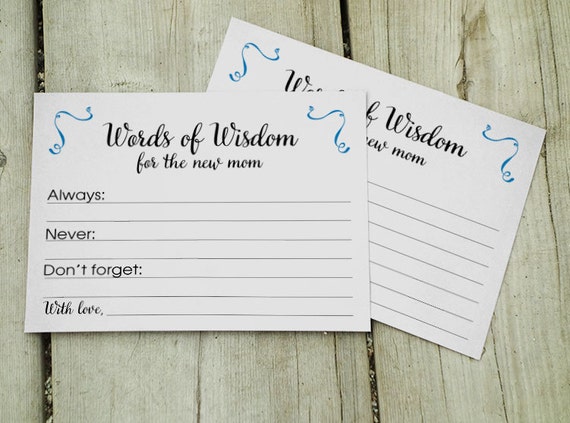 Words of Wisdom
for the new mom
Always:
Never:
Don't forget:
With love,
Wisdom
new mom